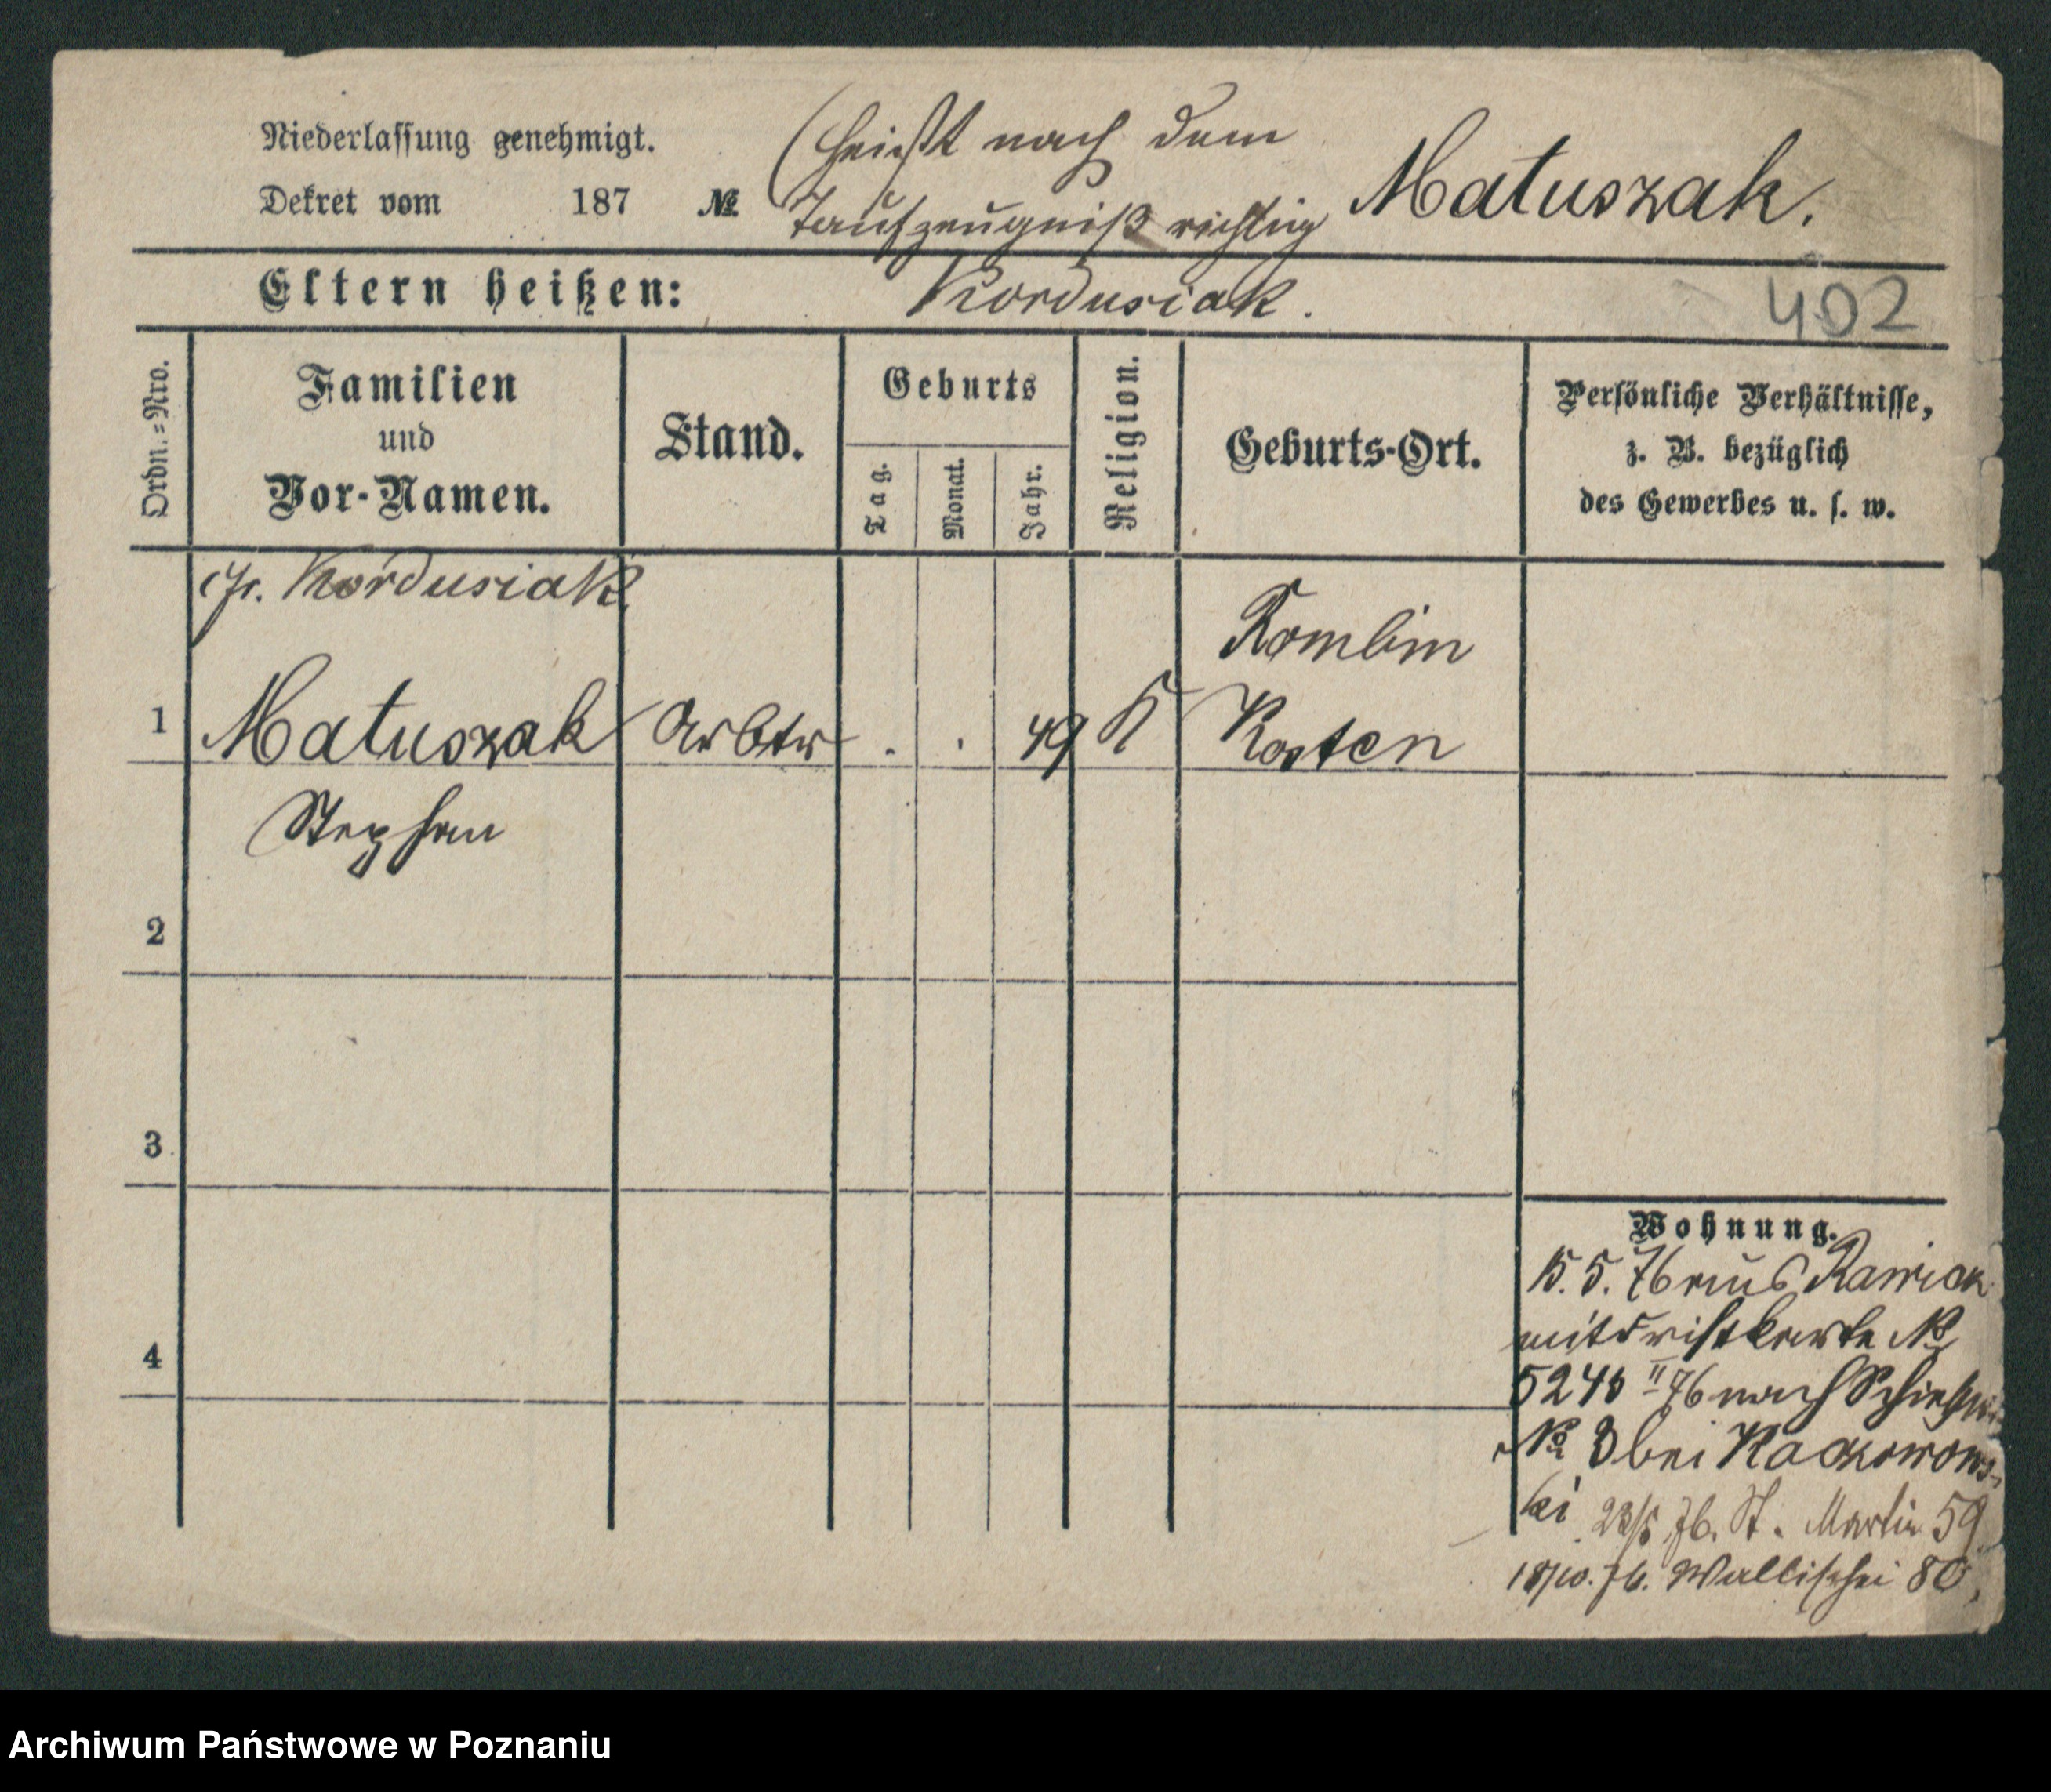 Niederlassung genehmigt.
Dekret vom 187 №
(heißt nach dem
Taufzeugniß richtig
Matuszak.
Eltern heißen: Kordusiak.
402
Ordn.=Nro.
Familien
und
Vor-Namen.
Stand.
Geburts
Tag.
Monat.
Jahr.
Religion.
Geburts-Ort.
Persönliche Verhältnisse,
z. B. bezüglich
des Gewerbes u. s. w.
Kordusiak
Rombin
1 Matuszak Arbtr . . 49 K Kosten
Stephan
2
3
4
Wohnung.
15. 5. 76 aus
mit №
76 nach
№ 3 bei
ki 23/5 76. St. Martin 59
18/10. 76. Wallischei 80,
Archiwum Państwowe w Poznaniu